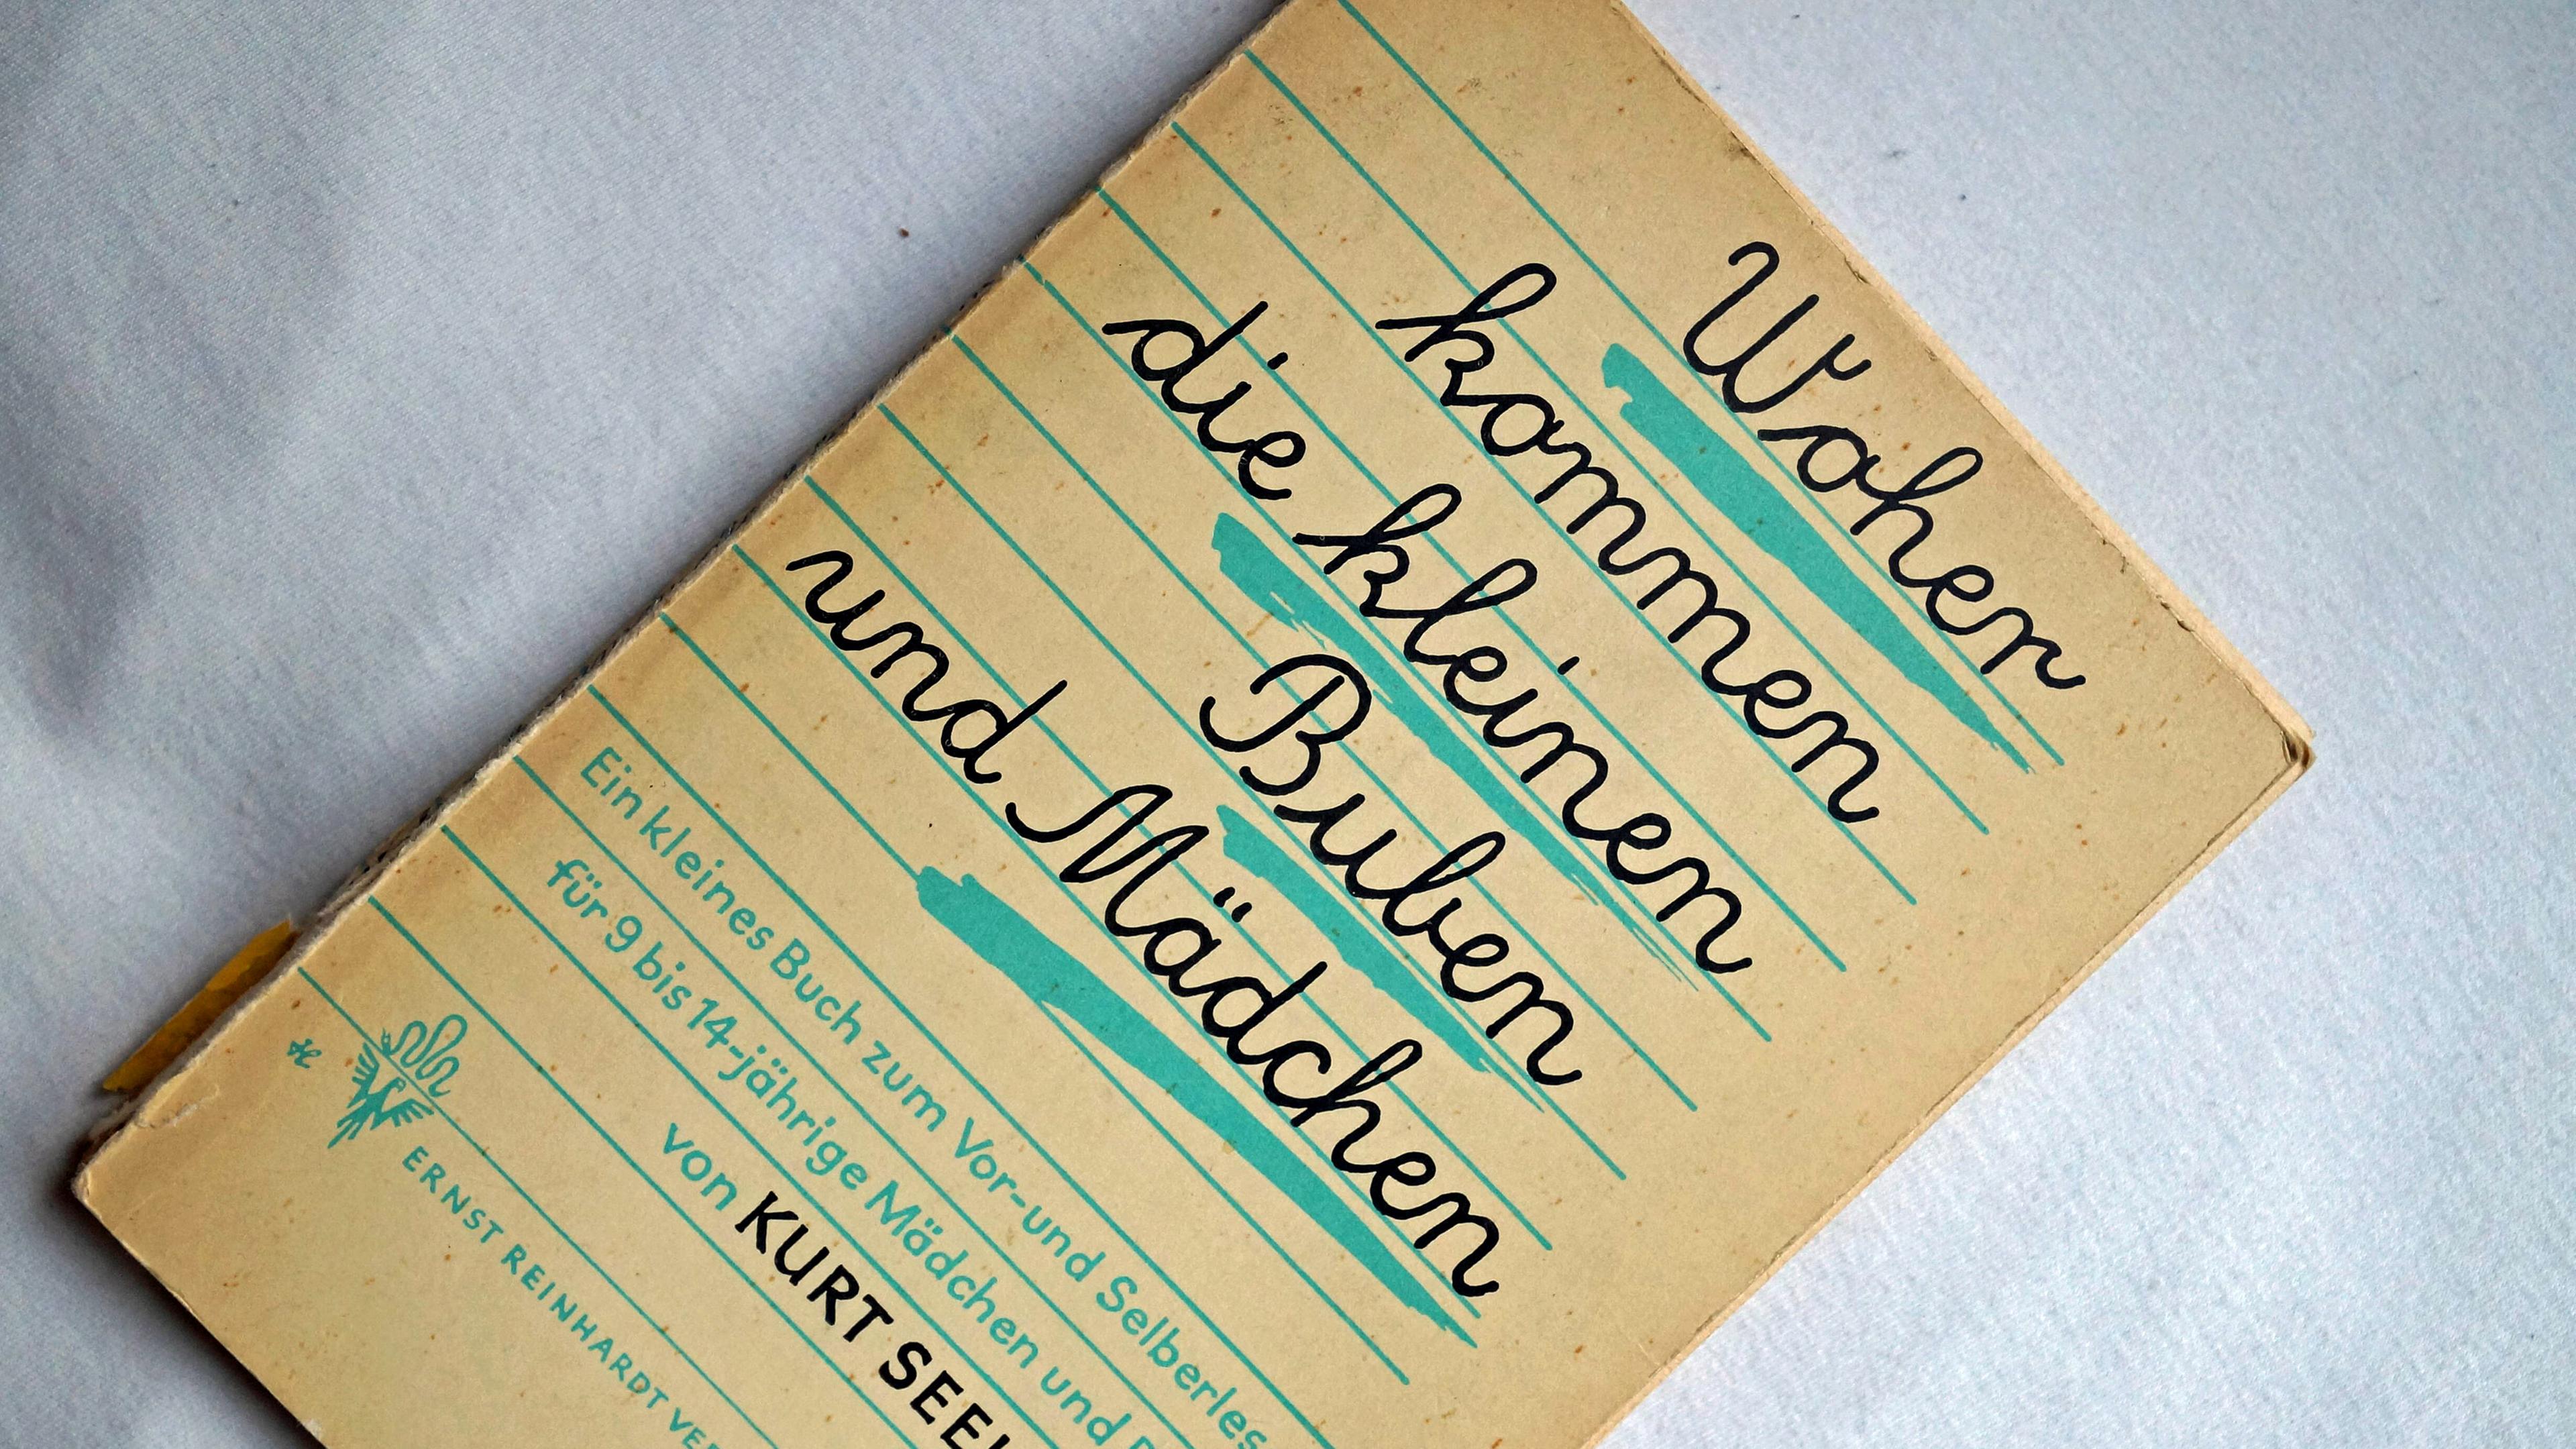 Woher
kommen
die kleinen
Buben
und Mädchen
Ein kleines Buch zum Vor-und Selberles
für 9 bis 14-jährige Mädchen und
von KURT SEEL
ERNST REINHARDT VER